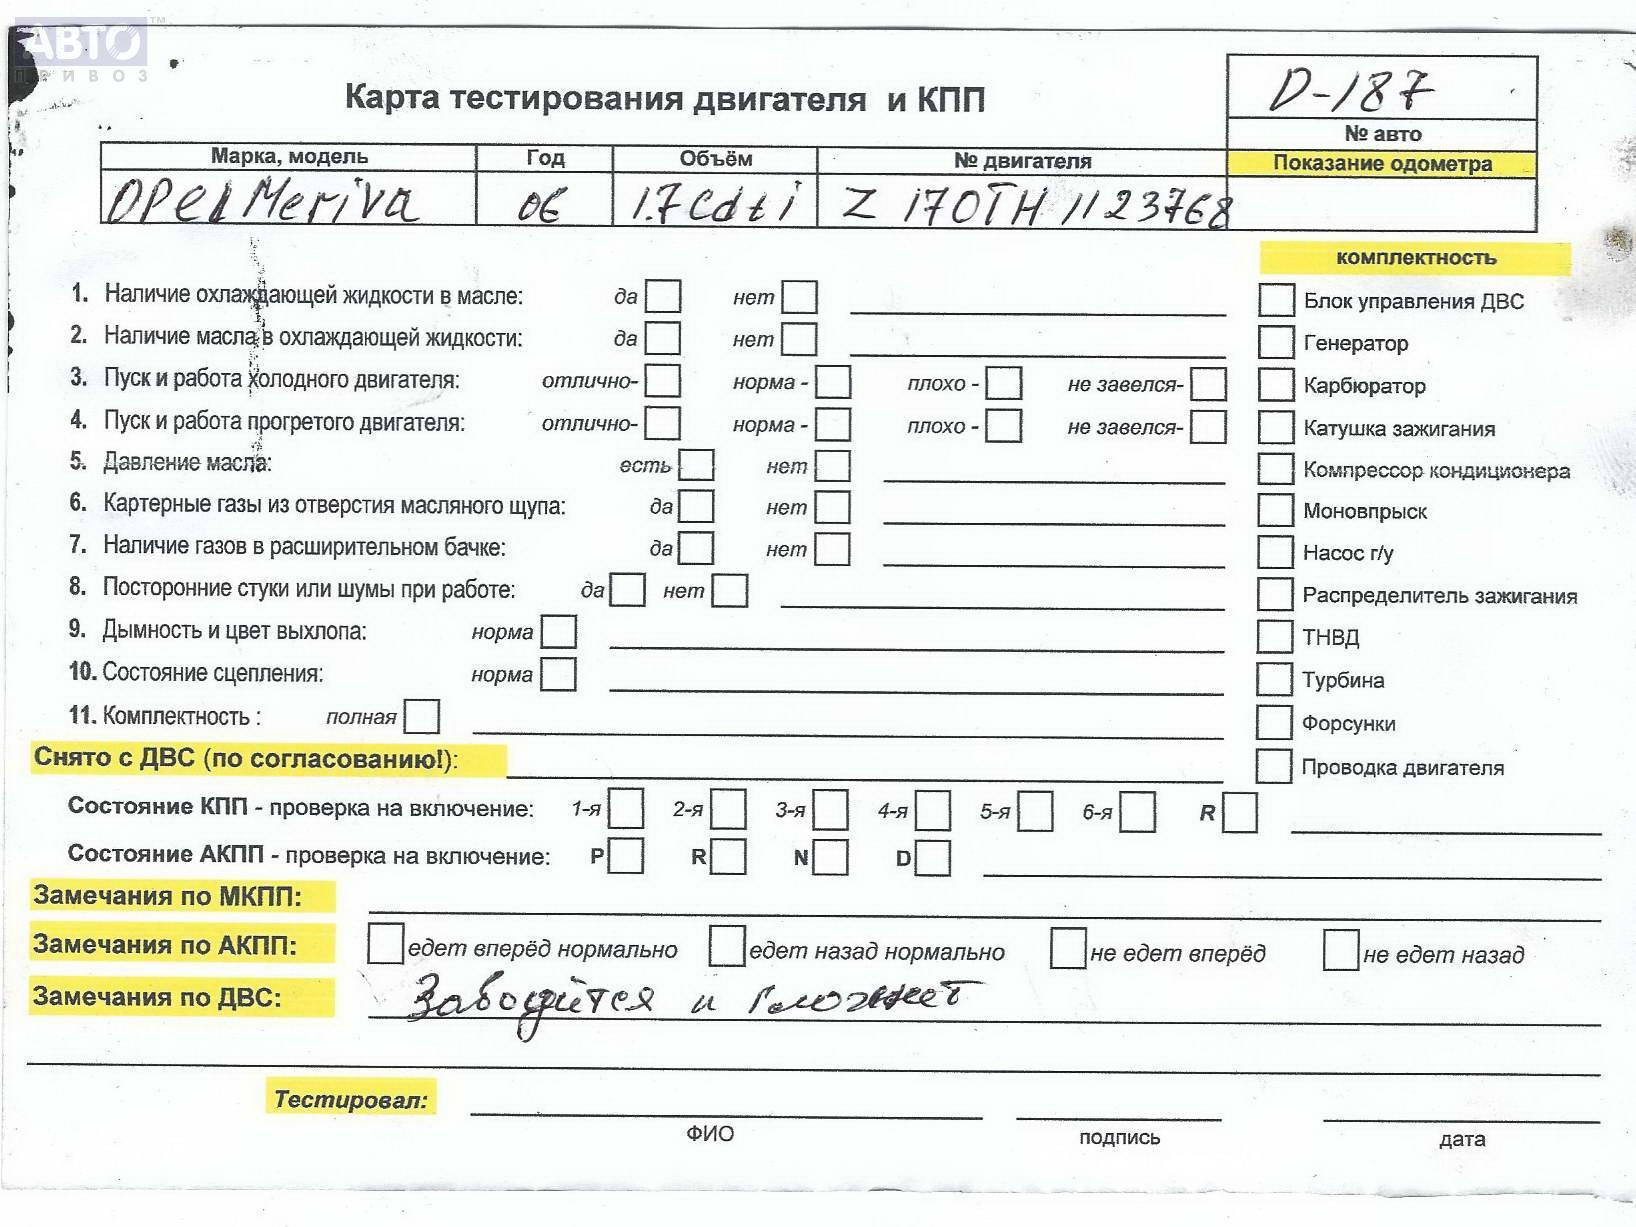 АВТО™
ПРИВОЗ
Карта тестирования двигателя и КПП
D-187
№ авто
Марка, модель Год Объём № двигателя Показание одометра
OPEL Meriva 06 1.7 Cdti Z 17OTH 1123768
комплектность
1. Наличие охлаждающей жидкости в масле: да нет Блок управления ДВС
2. Наличие масла в охлаждающей жидкости: да нет Генератор
3. Пуск и работа холодного двигателя: отлично- норма - плохо - не завелся- Карбюратор
4. Пуск и работа прогретого двигателя: отлично- норма - плохо - не завелся- Катушка зажигания
5. Давление масла: есть нет Компрессор кондиционера
6. Картерные газы из отверстия масляного щупа: да нет Моновпрыск
7. Наличие газов в расширительном бачке: да нет Насос г/у
8. Посторонние стуки или шумы при работе: да нет Распределитель зажигания
9. Дымность и цвет выхлопа: норма ТНВД
10. Состояние сцепления: норма Турбина
11. Комплектность : полная Форсунки
Снято с ДВС (по согласованию!): Проводка двигателя
Состояние КПП - проверка на включение: 1-я 2-я 3-я 4-я 5-я 6-я R
Состояние АКПП - проверка на включение: P R N D
Замечания по МКПП:
Замечания по АКПП: едет вперёд нормально едет назад нормально не едет вперёд не едет назад
Замечания по ДВС: Заводится и глохнет
Тестировал:
ФИО подпись дата